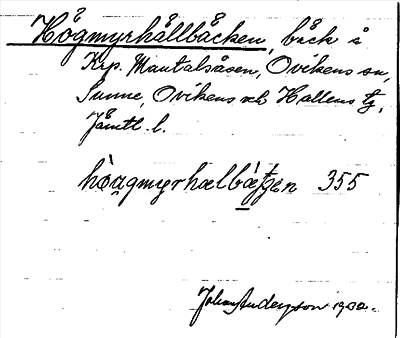 Högmyrhällbäcken, bäck å
Krp. Mantalsåsen, Ovikens sn,
Sunne, Ovikens och Hallens tg,
Jämtl. l.
355
Johan Anderson 1930.